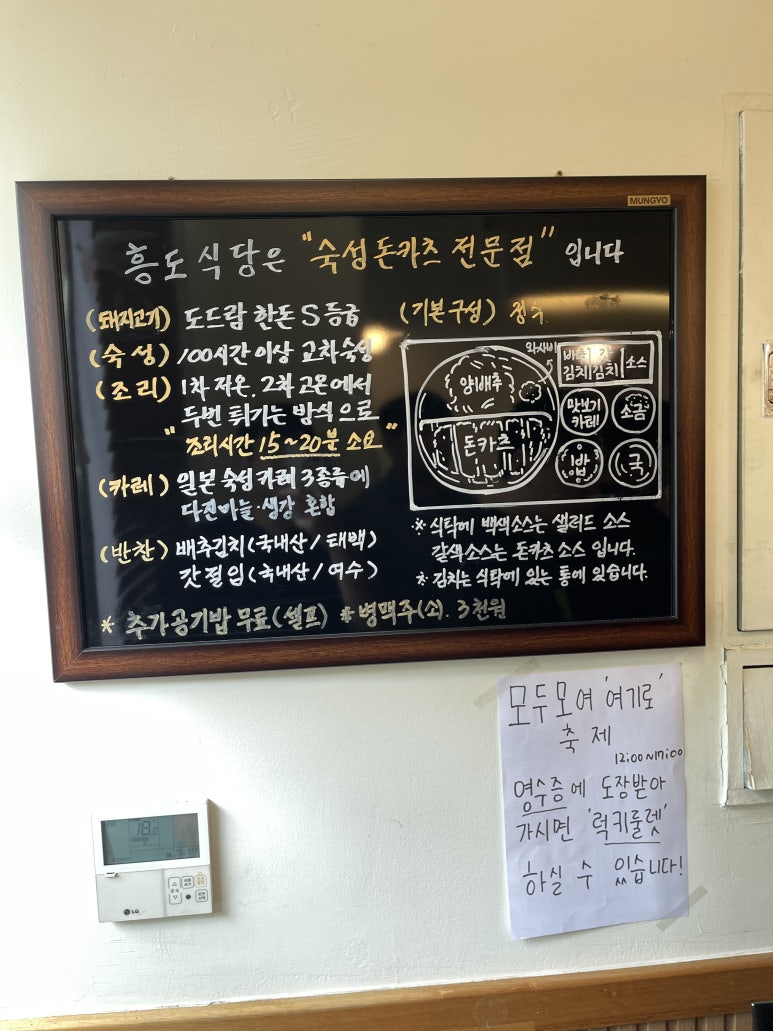 MUNGYO
흥도식당은 "숙성돈카츠 전문점" 입니다
(돼지고기) 도드람 한돈 S등급
(숙성) 100시간 이상 교차숙성
(조리) 1차 저온, 2차 고온에서
두번 튀기는 방식으로
"조리시간 15~20분 소요"
(카레) 일본 숙성카레 3종류에
다진마늘·생강 혼합
(반찬) 배추김치(국내산/태백)
갓절임(국내산/여수)
(기본구성) 정식
와사비
양배추
돈카츠
배추김치
갓김치
소스
맛보기
카레
소금
밥
국
※ 식탁에 백색소스는 샐러드 소스
갈색소스는 돈카츠 소스 입니다.
※ 김치는 식탁에 있는 통에 있습니다.
* 추가공기밥 무료(셀프) * 병맥주(소). 3천원
모두모여 '여기로'
축제
12:00~17:00
영수증에 도장받아
가시면 '럭키룰렛'
하실 수 있습니다!
18.0
LG